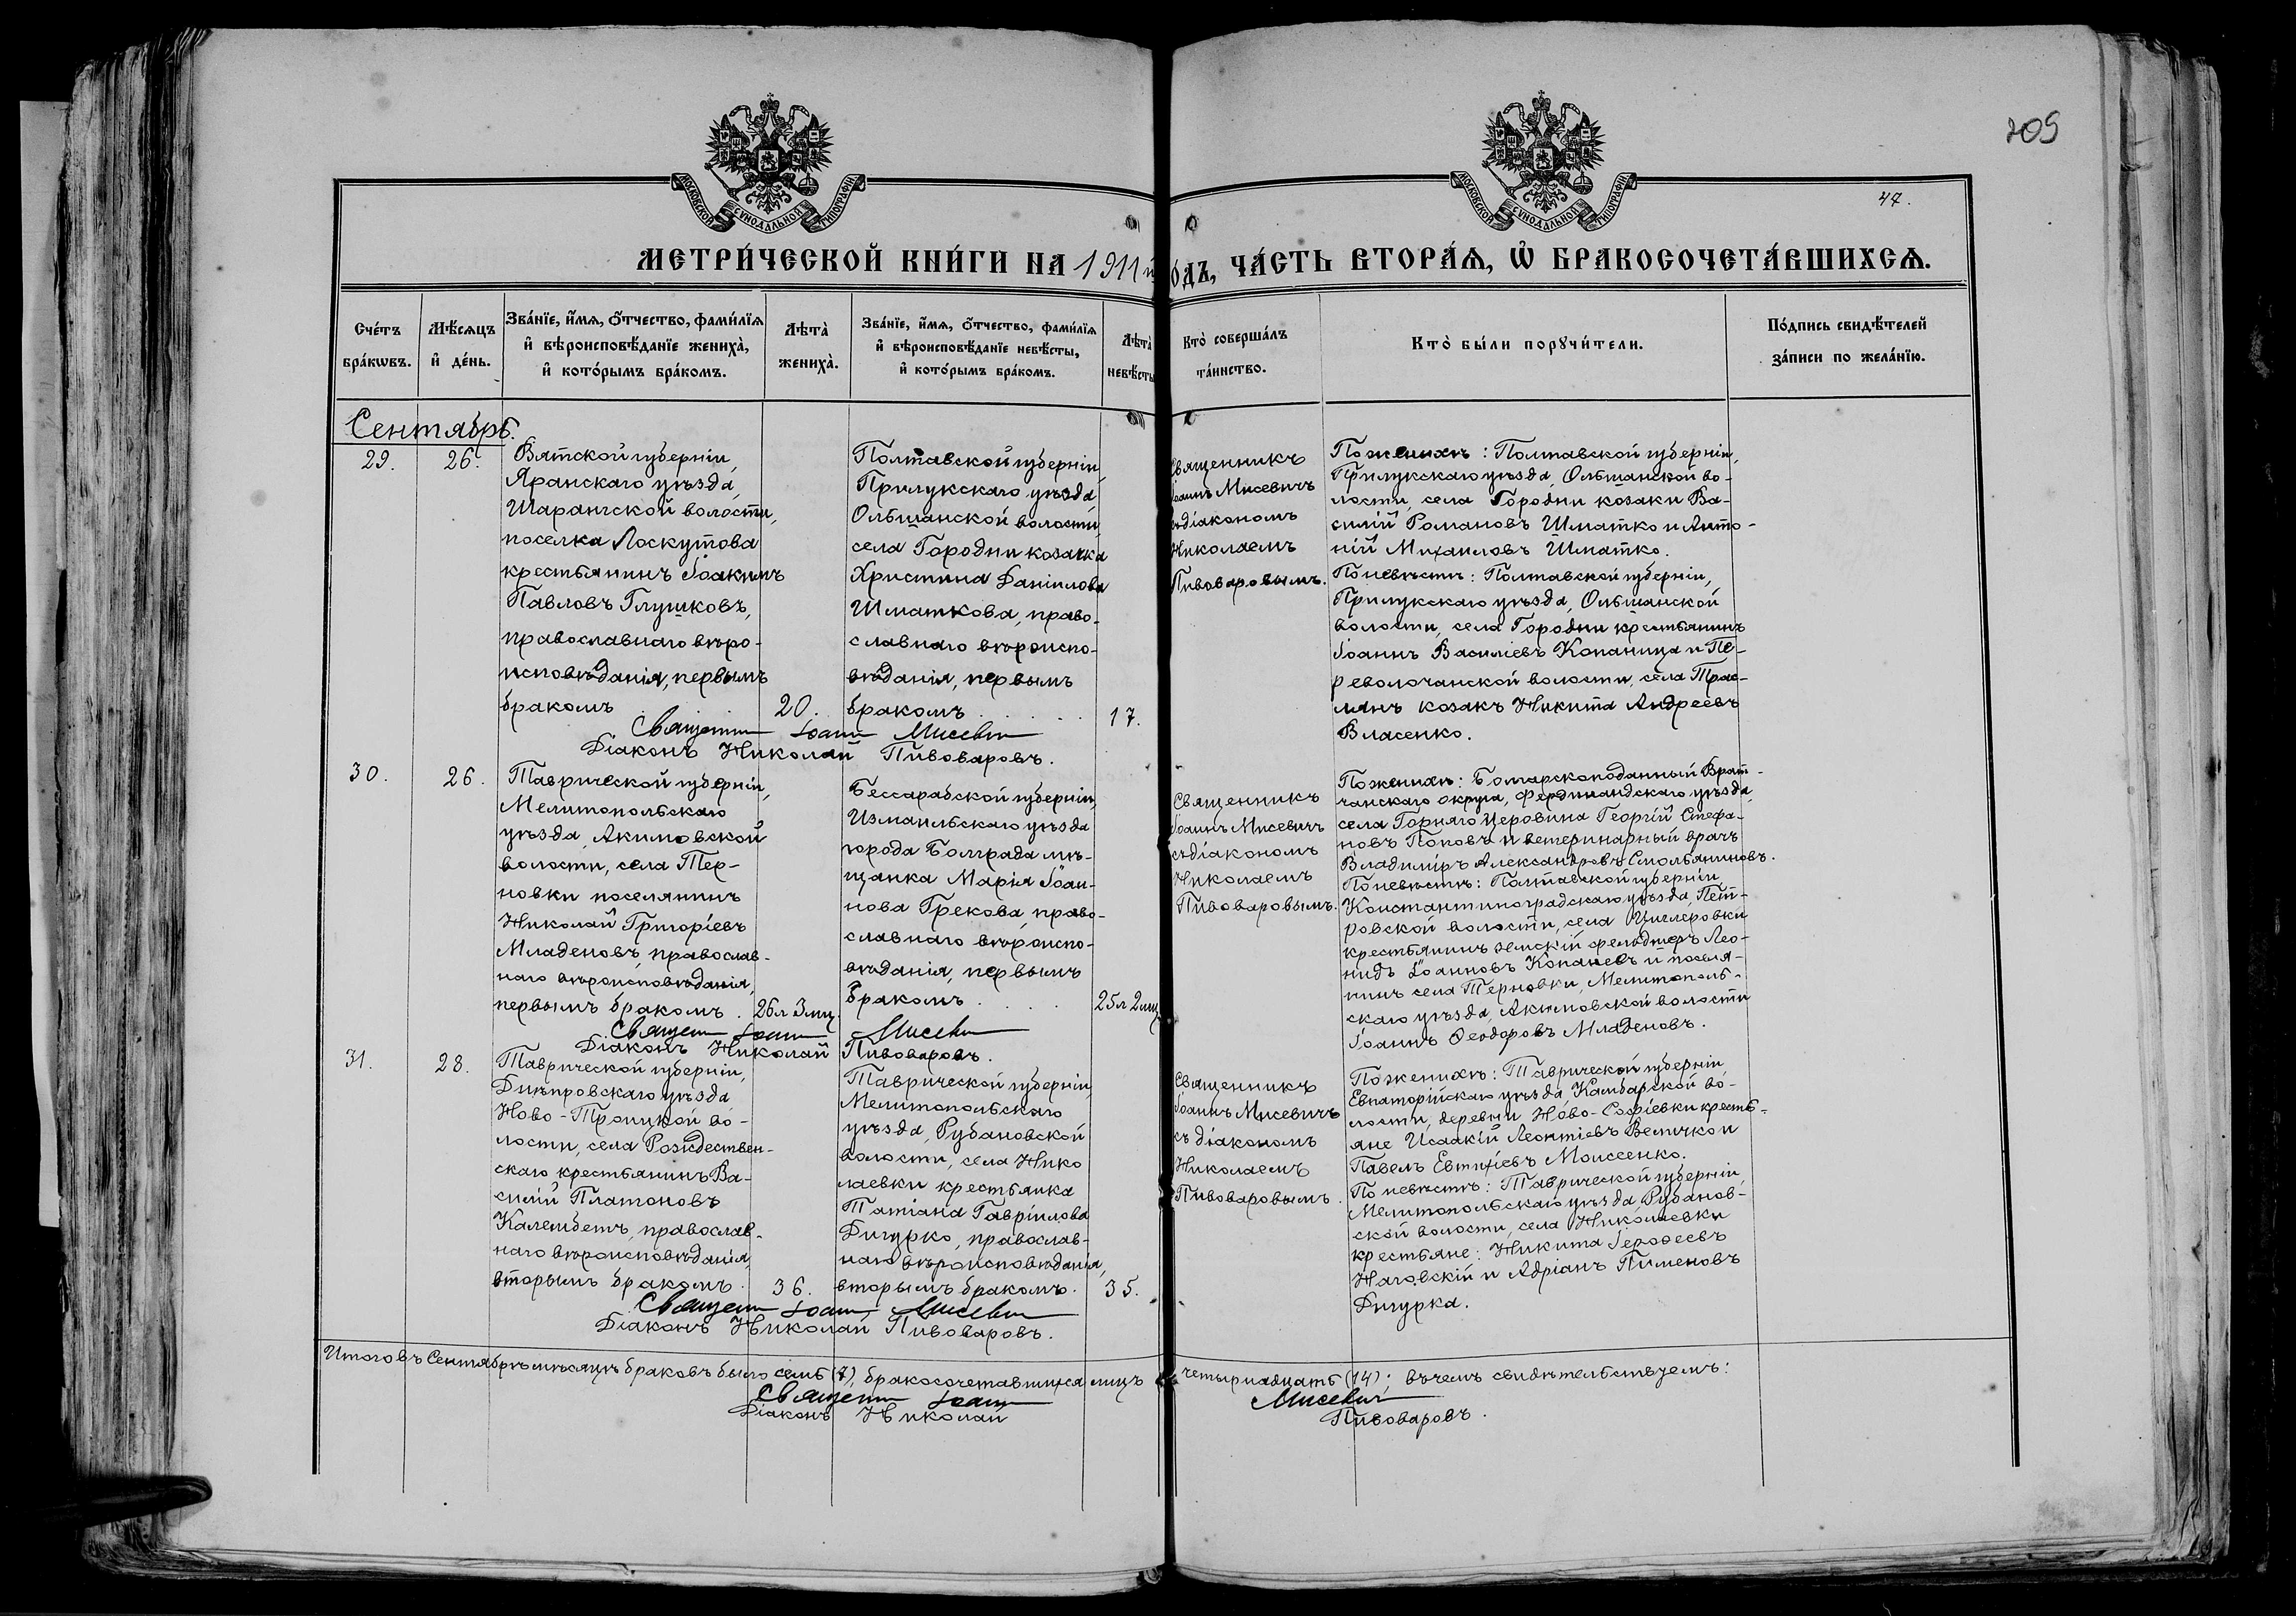 209
47.
МОСКОВСКОЙ СѴНОДАЛЬНОЙ ТИПОГРАФІИ
МОСКОВСКОЙ СѴНОДАЛЬНОЙ ТИПОГРАФІИ
МЕТРИ́ЧЕСКОЙ КНИ́ГИ НА 1911 й
О́ДЪ, ЧА́СТЬ ВТОРА́Ѧ, Ѡ҆ БРАКОСОЧЕТА́ВШИХСѦ.
Сче́тъ
бра́кѡвъ.
Мѣ́сѧцъ
и҆ де́нь.
Зва́нїе, и҆́мѧ, ѻ҆́тчество, фами́лїѧ
и҆ вѣроисповѣ́данїе жениха̀,
и҆ кото́рымъ бра́комъ.
Лѣта̀
жениха̀.
Зва́нїе, и҆́мѧ, ѻ҆́тчество, фами́лїѧ
и҆ вѣроисповѣ́данїе невѣ́сты,
и҆ кото́рымъ бра́комъ.
Лѣта̀
невѣ́сты
Кто̀ соверша́лъ
та́инство.
Кто̀ бы́ли порꙋчи́тели.
По́дпись свидѣ́телей
за́писи по жела́нїю.
Сентябрь.
29.
26.
Вятской губерніи,
Яранскаго уѣзда,
Шарангской волости,
поселка Лоскутова
крестьянинъ Іоакимъ
Павловъ Глушковъ,
православнаго вѣро-
исповѣданія, первымъ
бракомъ
20.
Полтавской губерніи,
Прилукскаго уѣзда,
Ольшанской волости,
села Городни козачка
Христина Даніилова
Шматкова, право-
славнаго вѣроиспо-
вѣданія, первымъ
бракомъ . . . . .
17.
Священникъ
Іоаннъ Мисевичъ
съ діакономъ
Николаемъ
Пивоваровымъ.
По женихѣ: Полтавской губерніи,
Прилукскаго уѣзда, Ольшанской во-
лости, села Городни козаки Ва-
силій Романовъ Шматко и Анто-
ній Михаиловъ Шматко.
По невѣстѣ: Полтавской губерніи,
Прилукскаго уѣзда, Ольшанской
волости, села Городни крестьянинъ
Іоаннъ Василіевъ Копаница и Пе-
револочанской волости, села Трос-
тянъ козакъ Никита Андреевъ
Власенко.
Священникъ Іоаннъ Мисевичъ
Діаконъ Николай Пивоваровъ.
30.
26.
Таврической губерніи,
Мелитопольскаго
уѣзда, Акимовской
волости, села Тер-
новки поселянинъ
Николай Григоріевъ
Младеновъ, православ-
наго вѣроисповѣданія,
первымъ бракомъ .
26 л 3 мц.
Бессарабской губерніи,
Измаильскаго уѣзда
города Болграда мѣ-
щанка Марія Іоан-
нова Грекова, право-
славнаго вѣроиспо-
вѣданія, первымъ
бракомъ . . .
25 л 2 мц
Священникъ
Іоаннъ Мисевичъ
съ діакономъ
Николаемъ
Пивоваровымъ.
По женихѣ: Болгарскоподанный Врат-
чанскаго округа, Фердинандскаго уѣзда,
села Горняго Церовина Георгій Стефа-
новъ Поповъ и ветеринарный врачъ
Владиміръ Александровъ Смольяниновъ.
По невѣстѣ: Полтавской губерніи
Константиноградскаго уѣзда, Пет-
ровской волости, села Циглеровки
крестьянинъ земскій фельдшеръ Лео-
нидъ Іоанновъ Копачевъ и поселя-
нинъ села Терновки, Мелитополь-
скаго уѣзда, Акимовской волости
Іоаннъ Ѳеодоровъ Младеновъ.
Священникъ Іоаннъ Мисевичъ
Діаконъ Николай Пивоваровъ.
31.
28.
Таврической губерніи,
Днѣпровскаго уѣзда
Ново-Троицкой во-
лости, села Рождествен-
скаго крестьянинъ Ва-
силій Платоновъ
Калембетъ, православ-
наго вѣроисповѣданія,
вторымъ бракомъ.
36.
Таврической губерніи,
Мелитопольскаго
уѣзда, Рубановской
волости, села Нико
лаевки крестьянка
Татіана Гавріилова
Дигурко, православ-
наго вѣроисповѣданія,
вторымъ бракомъ.
35.
Священникъ
Іоаннъ Мисевичъ
съ діакономъ
Николаемъ
Пивоваровымъ.
По женихѣ: Таврической губерніи,
Евпаторійскаго уѣзда, Камбарской во-
лости, деревни Ново-Софіевки кресть-
яне Исаакій Леонтіевъ Величко и
Павелъ Евтихіевъ Моисеенко.
По невѣстѣ: Таврической губерніи,
Мелитопольскаго уѣзда, Рубанов-
ской волости, села Николаевки
крестьяне: Никита Героѳеевъ
Наговскій и Адріанъ Пименовъ
Дигурка.
Священникъ Іоаннъ Мисевичъ
Діаконъ Николай Пивоваровъ.
Итого въ Сентябрѣ мѣсяцѣ браковъ было семь (7), бракосочетавшихся лицъ четырнадцать (14); въ чемъ свидѣтельствуемъ:
Священникъ Іоаннъ Мисевичъ
Діаконъ Николай Пивоваровъ.